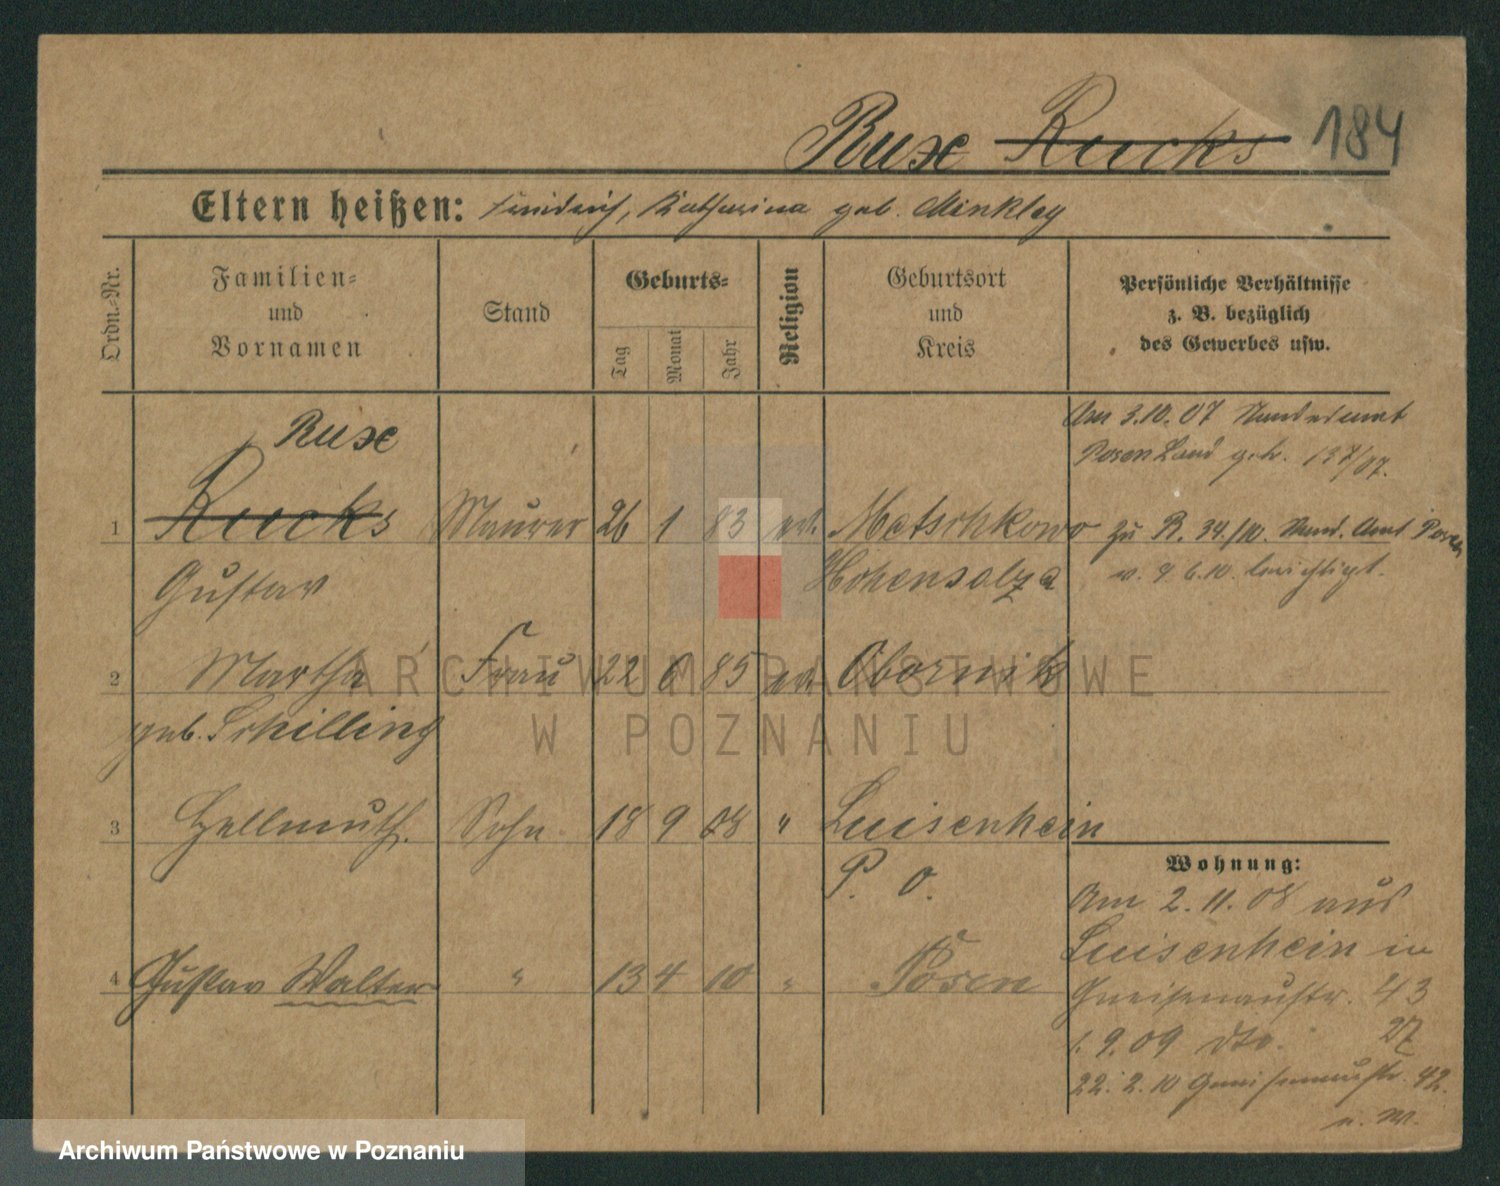 Ruxe Rucks 184
Eltern heißen: Friedrich, Katharina geb. Minkley
Ordn.=Nr.
Familien=
und
Vornamen
Stand
Geburts=
Tag
Monat
Jahr
Religion
Geburtsort
und
Kreis
Persönliche Verhältnisse
z. B. bezüglich
des Gewerbes usw.
Am 3.10.07 Standesamt
Posen Land geh. 137/07.
Ruxe
1 Rucks Maurer 26 1 83 ev. Matschkowo
Gustav Hohensalza
zu B. 34./10. Stand. Amt Posen
v. 9.6.10. berichtigt.
2 Martha Frau 22 6 85 ev. Obornik
geb. Schilling
3 Hellmuth. Sohn 18 9 08 " Luisenhein
P. O.
4 Gustav Walter " 13 4 10 " Posen
Wohnung:
Am 2.11.08 aus
Luisenhein in
Gneisenaustr. 43
1.9.09 dto. 27
22.2.10 Gneisenaustr. 42.
ARCHIWUM PAŃSTWOWE
W POZNANIU
Archiwum Państwowe w Poznaniu